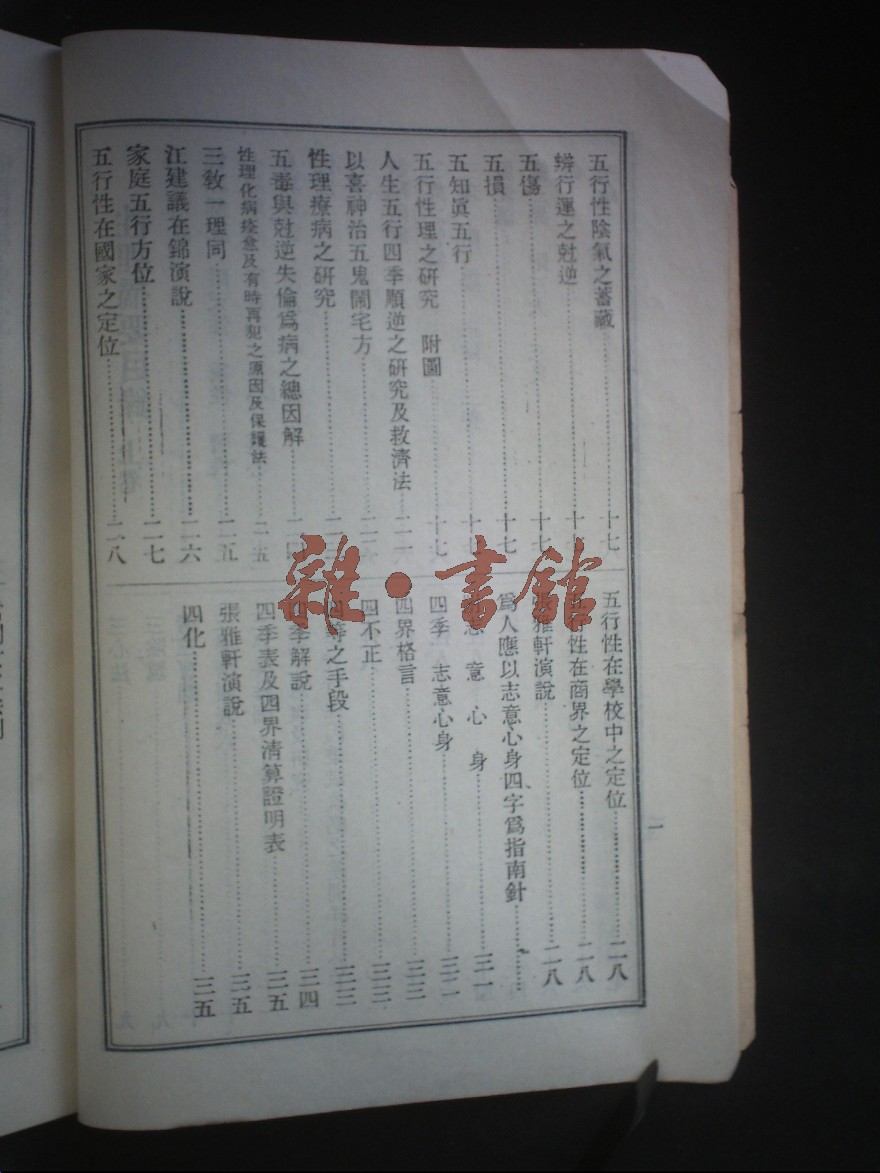 五行性陰氣之蓄藏……十七
辨行運之尅逆……十七
五傷……十七
五損……十七
五知眞五行……十七
五行性理之研究 附圖……十七
人生五行四季順逆之研究及救濟法……二一
以喜神治五鬼鬧宅方……二
性理療病之研究……二
五毒與尅逆失倫爲病之總因解……二四
性理化病痊愈及有時再犯之原因及保護法……二五
三教一理同……二五
江建議在錦演說……二六
家庭五行方位……二七
五行性在國家之定位……二八
五行性在學校中之定位……二八
五行性在商界之定位……二八
張雅軒演說……二八
爲人應以志意心身四字爲指南針……
志意心身……三一
四季 志意心身……三二
四界格言……三三
四不正……三三
四等之手段……三三
四季解說……三四
四季表及四界清算證明表……三五
張雅軒演說……三五
四化……三五
一
雜·書館